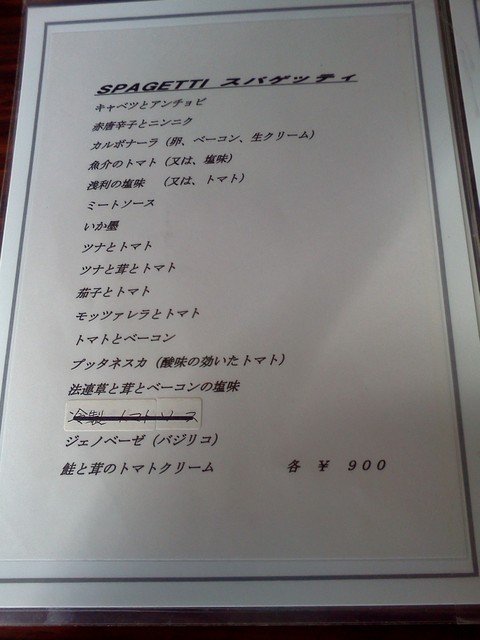 SPAGETTI スパゲッティ
キャベツとアンチョビ
赤唐辛子とニンニク
カルボナーラ（卵、ベーコン、生クリーム）
魚介のトマト（又は、塩味）
浅利の塩味　（又は、トマト）
ミートソース
いか墨
ツナとトマト
ツナと茸とトマト
茄子とトマト
モッツァレラとトマト
トマトとベーコン
プッタネスカ（酸味の効いたトマト）
法連草と茸とベーコンの塩味
冷製 トマトソース
ジェノベーゼ（バジリコ）
鮭と茸のトマトクリーム　各 ￥ 900